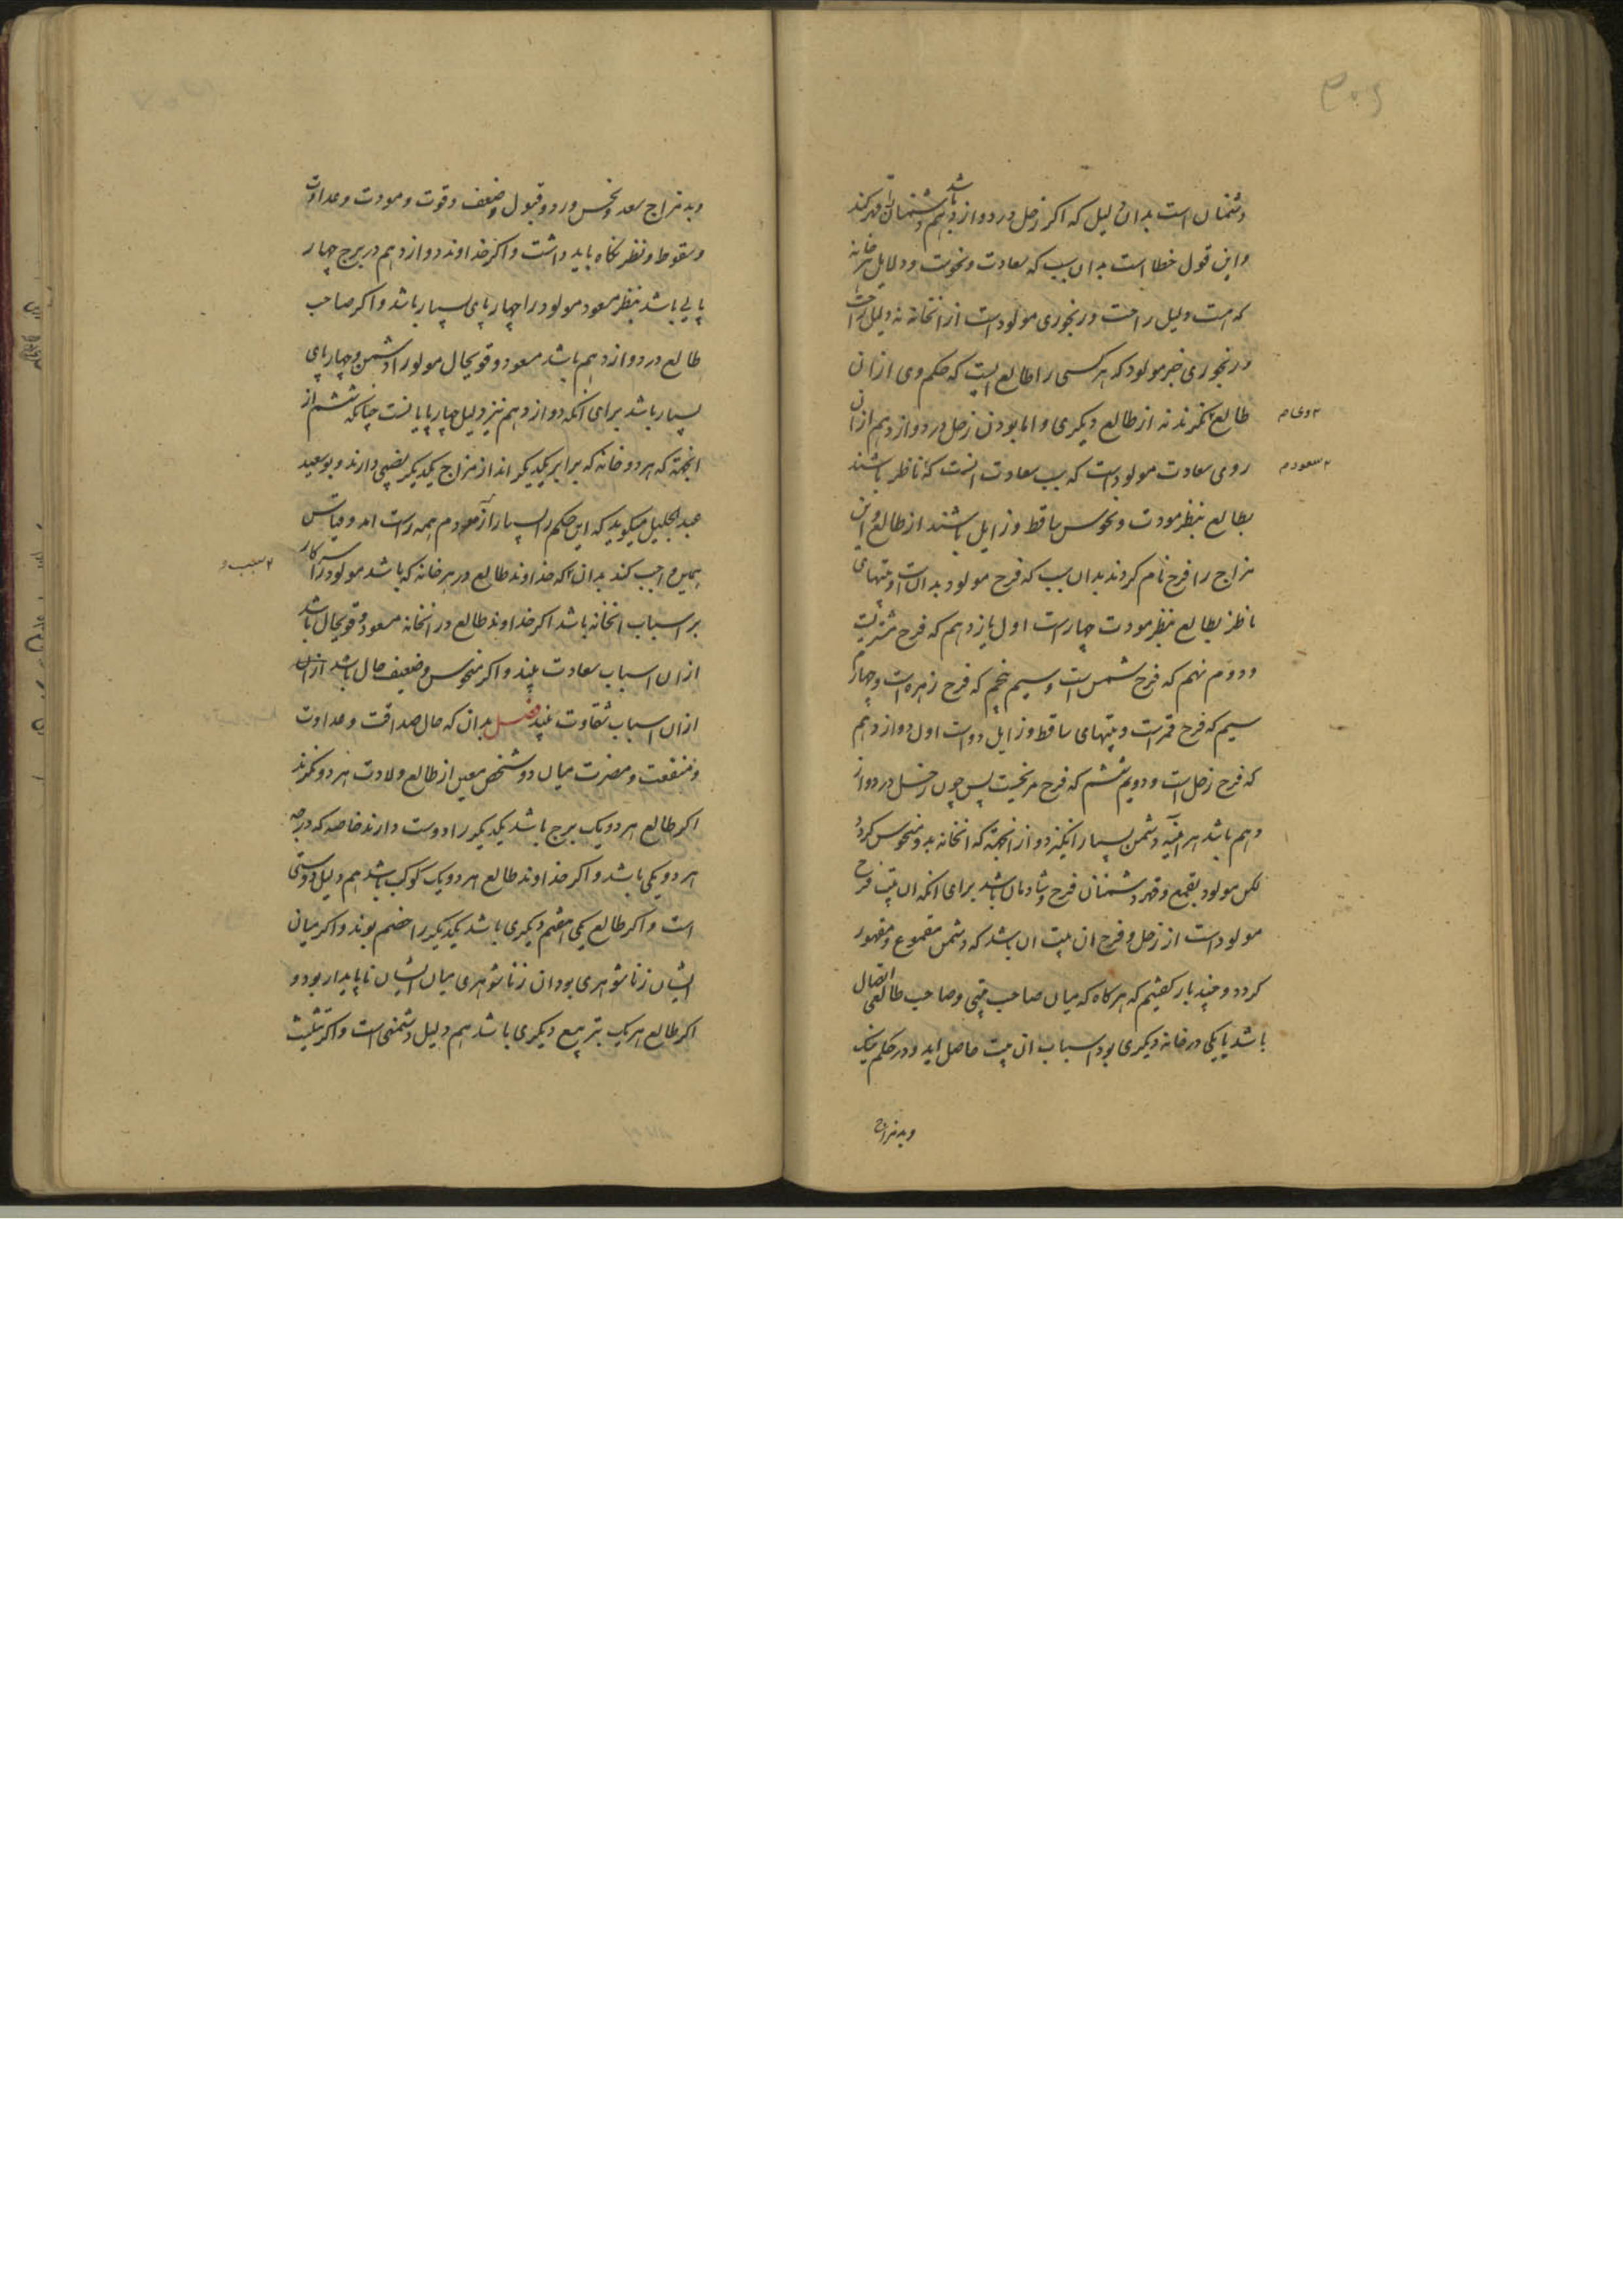 دشمنان است بدان دلیل که اکر زحل در دوازدهم باشد دشمنانرا قهر کند
واین قول خطا است بدان سبب که سعادت ونحوست ودلایل هر خانه
که هست دلیل راحت ورنجوری مولودست از انخانه نه دلیل راحت
ورنجوری خبر مولود که هر کسی را طالع است که حکم وی از ان
طالع نکرند نه از طالع دیکری واما بودن زحل در دوازدهم از ان
روی سعادت مولود است که سبب سعادت انست که ناظر باشند
سعود
بطالع بنظر مودت ونحوس ساقط وزایل باشند از طالع واین
مزاج را فرح نام کردند بدان سبب که فرح مولود بدان است وبیتهای
ناظر بطالع بنظر مودت چهارست اول یازدهم که فرح مشتریست
ودوم نهم که فرح شمس است وسیم پنجم که فرح زهره است وچهارم
سیم که فرح قمرست وبیتهای ساقط وزایل دواست اول دوازدهم
که فرح زحل است ودویم ششم که فرح مریخست پس چون زحل در دواز
دهم باشد هر اینه دشمن بسیار انکیزد واز انجهة که انخانه بد ومنحوس کردد
لکن مولود بقمع وقهر دشمنان فرح وشادمان باشد برای انکه ان بیت فرح
مولود است از زحل وفرح ان بیت ان باشد که دشمن مقموع ومقهور
کردد وچند بار کفتیم که هر کاه که میان صاحب بیتی وصاحب طالعی اتصال
باشد یا یکی در خانه دیکری بود اسباب ان بیت حاصل اید ودر حکم نیک
وبد مزاج
وبد مزاج سعد ونحس ورد وقبول وضعف وقوت ومودت وعداوت
وسقوط ونظر نکاه باید داشت واکر خداوند دوازدهم در برج چهار
پایی باشد بنظر سعود مولود را چهارپای بسیار باشد واکر صاحب
طالع در دوازدهم باشد مسعود وقویحال مولود را دشمن وچهارپای
بسیار باشد برای انکه دوازدهم نیز دلیل چهارپایانست چنانکه ششم از
انجهة که هر دو خانه که برابر یکدیکر اند از مزاج یکدیکر نصیبی دارند وبوسعید
عبدالجلیل میکوید که این حکم را بسیار ازمودم همه راست امد وقیاس
همین واجب کند بدانکه خداوند طالع در هر خانه که باشد مولود را سر کار
سبب
بر اسباب انخانه باشد اکر خداوند طالع در انخانه مسعود وقویحال باشد
از ان اسباب سعادت بیند واکر منحوس وضعیف حال باشد از ان
از ان اسباب شقاوت بیند فصل بدان که حال صداقت وعداوت
ومنفعت ومضرت میان دو شخص معین از طالع ولادت هر دو نکرند
اکر طالع هر دو یک برج باشد یکدیکر را دوست دارند خاصه که درجه
هر دو یکی باشد واکر خداوند طالع هر دو یک کوکب باشد هم دلیل دوستی
است واکر طالع یکی هفتم دیکری باشد یکدیکر را خصم بوند واکر میان
ایشان زناشوهری بود ان زناشوهری میان ایشان ناپایدار بود و
اکر طالع هر یک بتربیع دیکری باشد هم دلیل دشمنی است واکر تثلیث